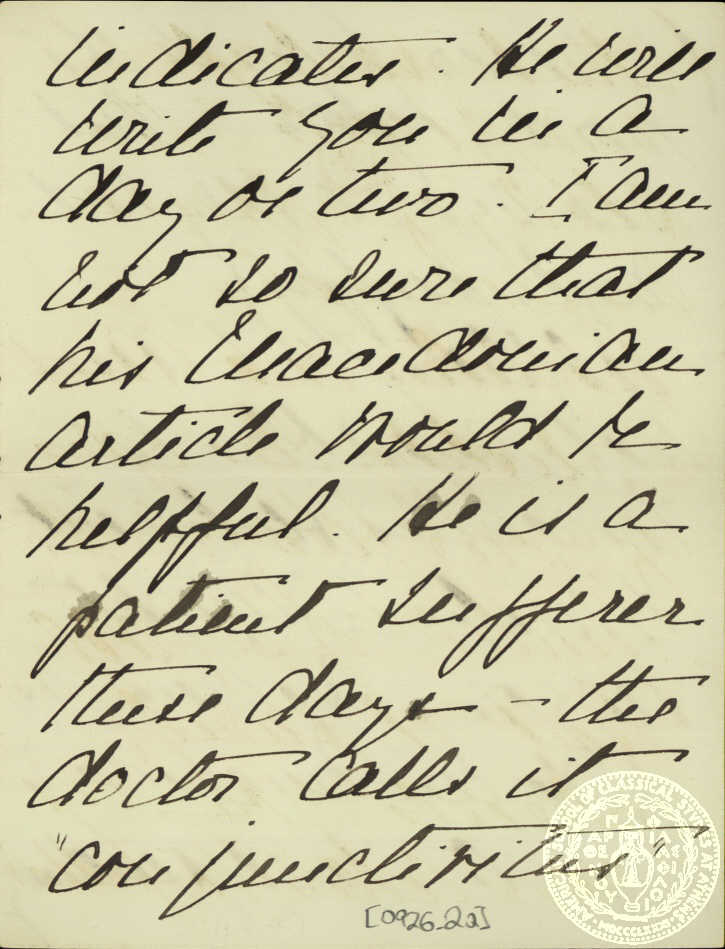 indicates. He will
write you in a
day or two. I am
not so sure that
his Macedonian
article would be
helpful. He is a
patient sufferer
these days – the
doctor calls it
"conjunctivitus"
[0926_2a]
AMERICAN SCHOOL OF CLASSICAL STUDIES AT ATHENS
MDCCCLXXXI